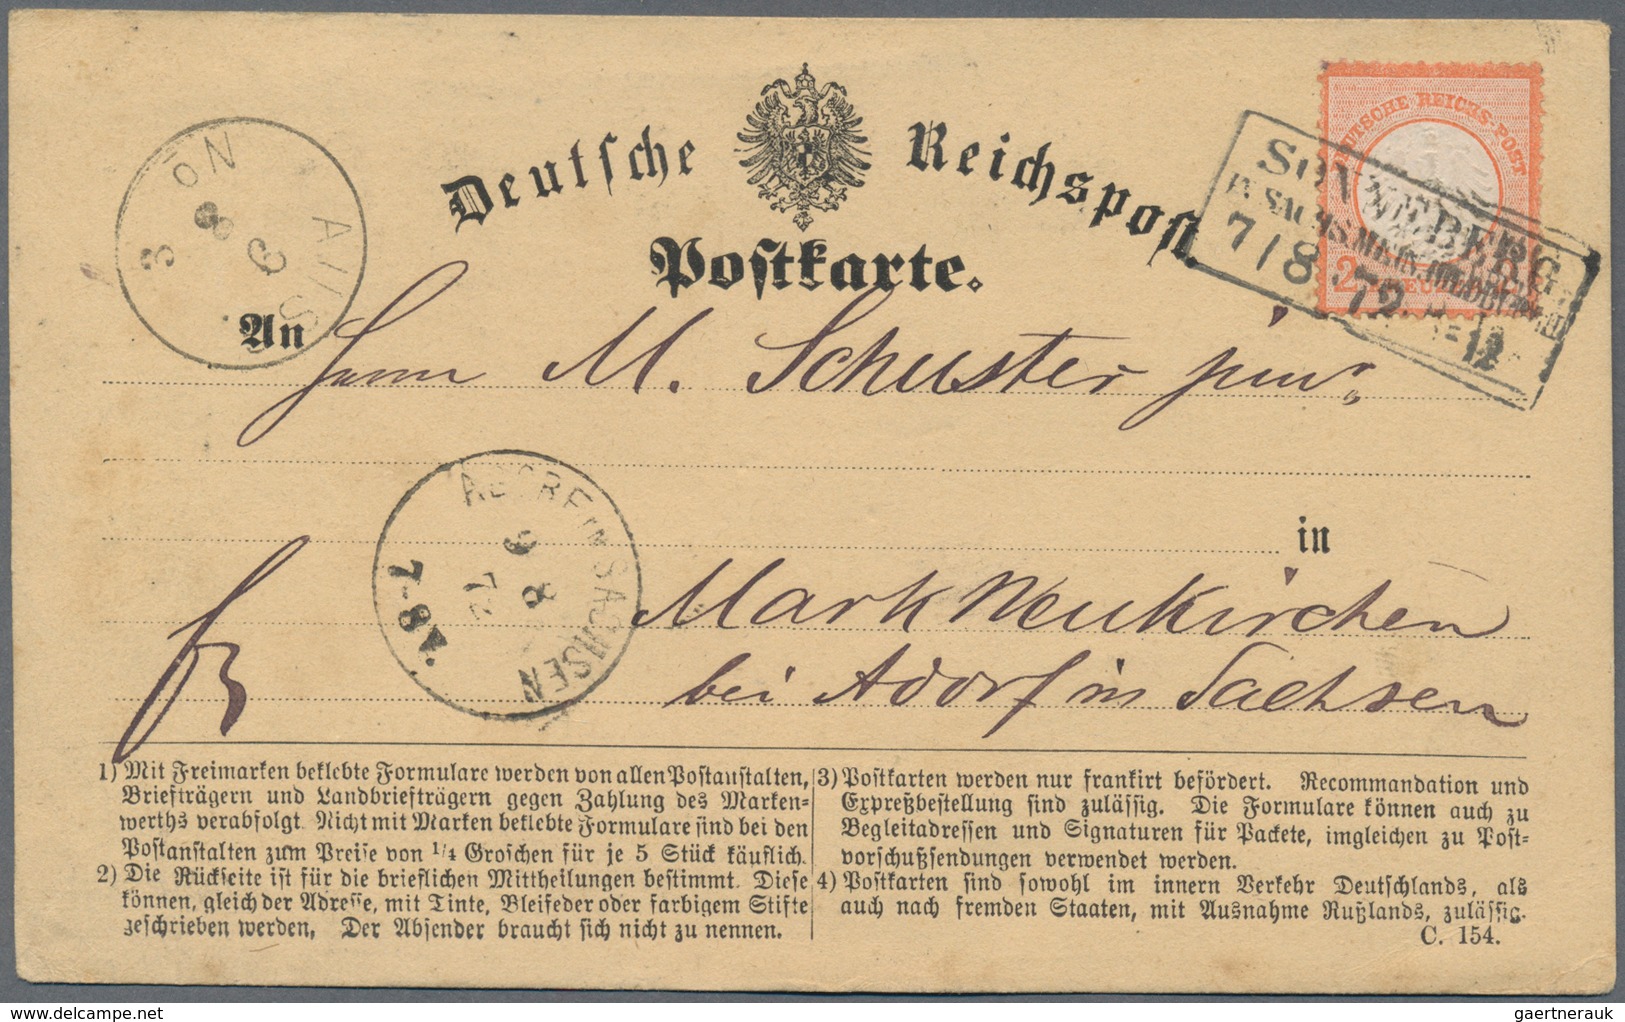 Deutsche Reichspost.
Postkarte.
DEUTSCHE REICHS-POST
SONNEBERG
7/8 72
AUSG
No 3
9 8
An Herrn M. Schuster jun.
ADORF IN SACHSEN
9 8
72
7-8 V.
in Mark Neukirchen
bei Adorf in Sachsen
fr
1) Mit Freimarken beklebte Formulare werden von allen Postanstalten,
Briefträgern und Landbriefträgern gegen Zahlung des Marken-
werths verabfolgt. Nicht mit Marken beklebte Formulare sind bei den
Postanstalten zum Preise von 1/4 Groschen für je 5 Stück käuflich.
2) Die Rückseite ist für die brieflichen Mittheilungen bestimmt. Diese
können, gleich der Adresse, mit Tinte, Bleifeder oder farbigem Stifte
geschrieben werden. Der Absender braucht sich nicht zu nennen.
3) Postkarten werden nur frankirt befördert. Recommandation und
Expreßbestellung sind zulässig. Die Formulare können auch zu
Begleitadressen und Signaturen für Packete, imgleichen zu Post-
vorschußsendungen verwendet werden.
4) Postkarten sind sowohl im innern Verkehr Deutschlands, als
auch nach fremden Staaten, mit Ausnahme Rußlands, zulässig.
C. 154.
gaertnerauk